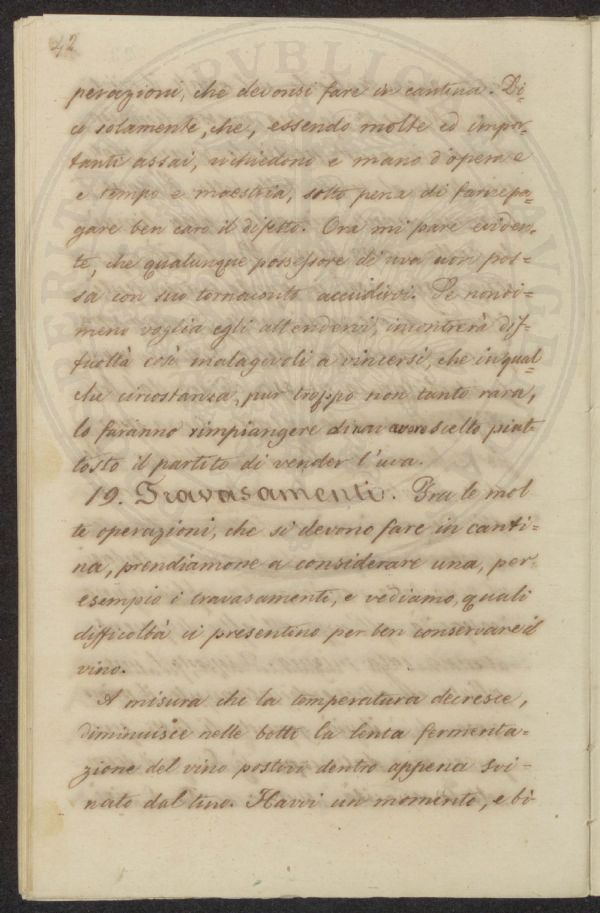 42
perazioni, che devonsi fare in cantina. Di=
co solamente, che, essendo molte ed impor=
tanti assai, richiedono e mano d'opera e
e tempo e maestria, sotto pena di farcepa=
gare ben caro il difetto. Ora mi pare eviden=
te, che qualunque possessore di uva non pos=
sa con suo tornaconto accudirvi. Se nondi=
meno voglia egli attendervi, incontrerà dif=
ficoltà così malagevoli a vincersi, che in qual=
che circostanza, pur troppo non tanto rara,
lo faranno rimpiangere di non avere scelto piut
tosto il partito di vender l'uva.
19. Travasamenti. Fra le mol
te operazioni, che si devono fare in canti=
na, prendiamone a considerare una, per
esempio i travasamenti, e vediamo, quali
difficoltà ci presentino per ben conservare il
vino.
A misura che la temperatura decresce,
diminuisce nelle botti la lenta fermenta=
zione del vino postovi dentro appena svi=
nato dal tino. Havvi un momento, e bi